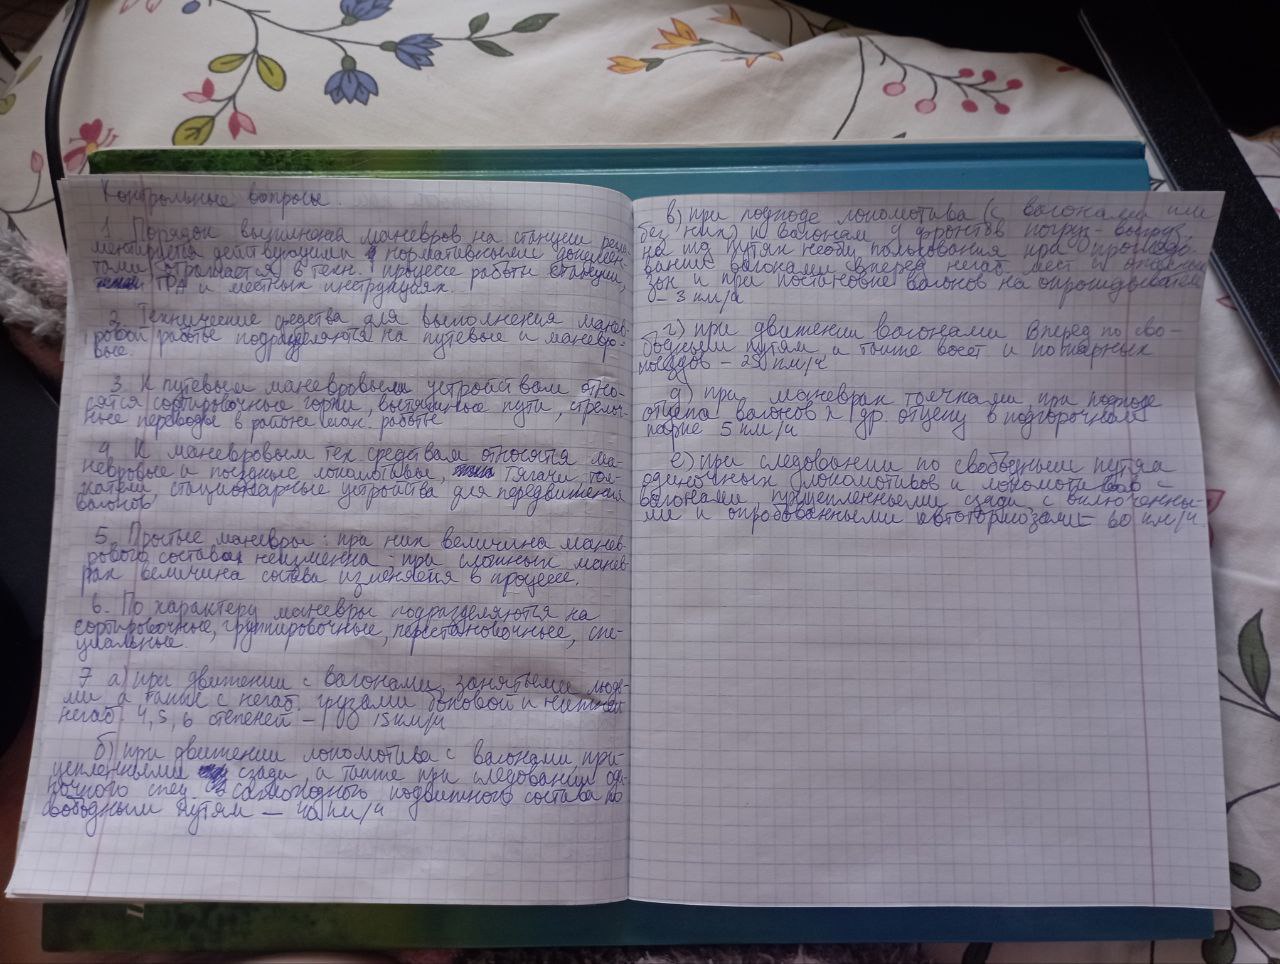 Контрольные вопросы.
1. Порядок выполнения маневров на станции регла-
ментируется действующими нормативными докумен-
тами отражается в техн. процессе работы станции,
ТРА и местных инструкциях.
2. Технические средства для выполнения манев-
ровой работы подразделяются на путевые и маневро-
вые.
3. К путевым маневровым устройствам отно-
сятся сортировочные горки, вытяжные пути, стрелоч-
ные переводы в районе ман. работы
4. К маневровым тех средствам относятся ма-
невровые и поездные локомотивы, тягачи, тол-
катели, стационарные устройства для передвижения
вагонов
5. Простые маневры: при них величина манев-
рового состава неизменна; при сложных манев-
рах величина состава изменяется в процессе.
6. По характеру маневры подразделяются на
сортировочные, группировочные, перестановочные, спе-
циальные.
7 а) при движении с вагонами, занятыми людь-
ми а также с негаб. грузами боковой и нижней
негаб. 4, 5, 6 степеней – 15 км/ч
б) при движении локомотива с вагонами при-
цепленными сзади, а также при следовании оди-
ночного спец. самоходного подвижного состава по
свободным путям – 40 км/ч
в) при подходе локомотива (с вагонами или
без них) к вагонам у фронтов погруз-выгруз,
на пути необщ пользования при
вагонами вперед негаб. мест и опасных
зон и при постановке вагонов на
– 3 км/ч
г) при движении вагонами вперед по сво-
бодным путям а также восст и пожарных
поездов – 25 км/ч
д) при маневрах толчками, при подходе
отцепа вагонов к др. отцепу в подгорочном
парке 5 км/ч
е) при следовании по свободным путям
одиночных локомотивов и локомотивов с
вагонами, прицепленными сзади с включенны-
ми и опробованными автотормозами – 60 км/ч